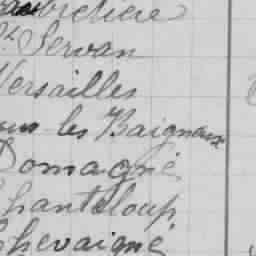 St Servan
Versailles
les Baigneux
Domagné
Chanteloup
Chevaigné